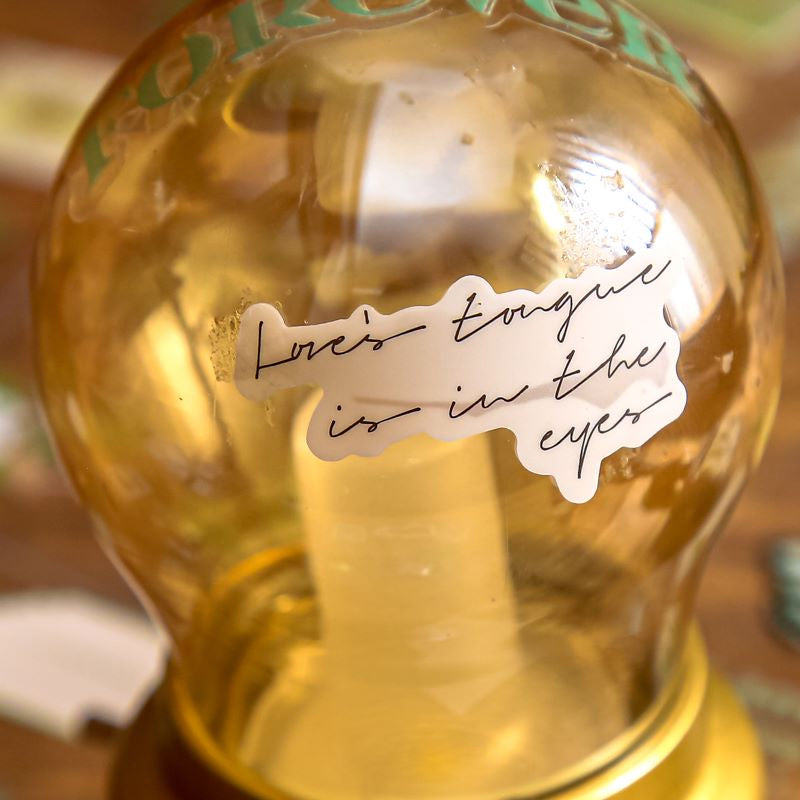 FOREVER
Love's tongue
is in the
eyes